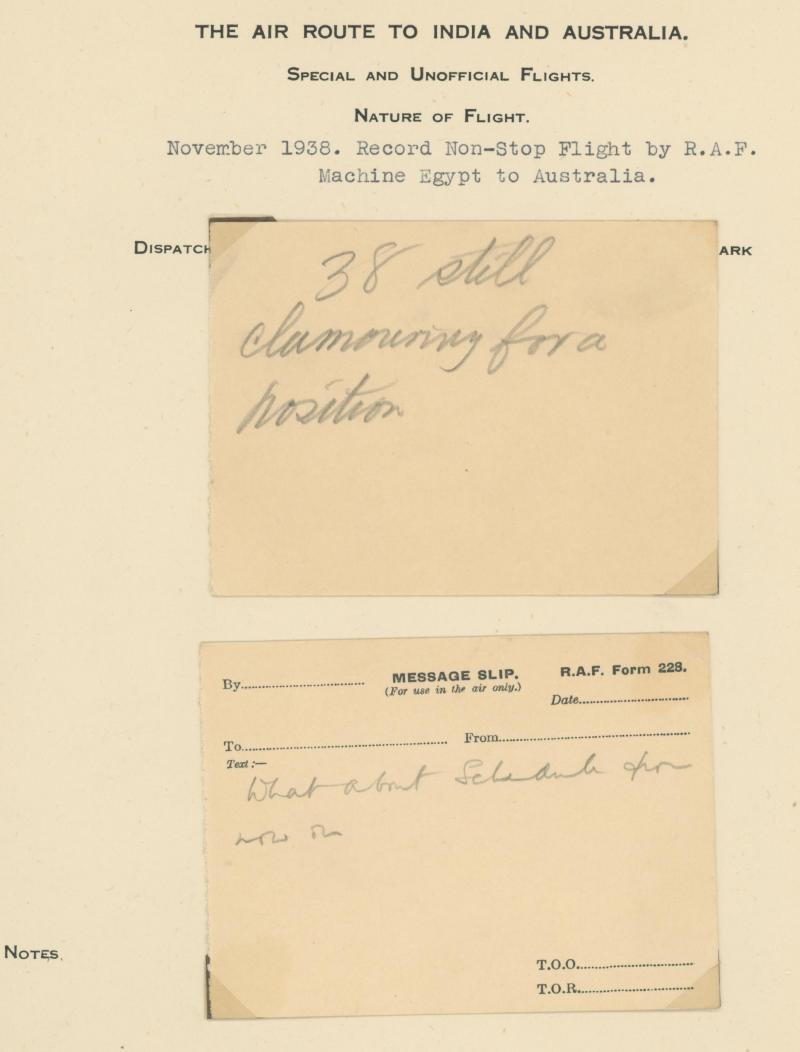 THE AIR ROUTE TO INDIA AND AUSTRALIA.
SPECIAL AND UNOFFICIAL FLIGHTS.
NATURE OF FLIGHT.
November 1938. Record Non-Stop Flight by R.A.F.
Machine Egypt to Australia.
DISPATCH ARK
38 still
clamouring for a
position
By MESSAGE SLIP. R.A.F. Form 228.
(For use in the air only.)
Date
To From
Text :—
What about Schedule from
now on
NOTES.
T.O.O.
T.O.R.